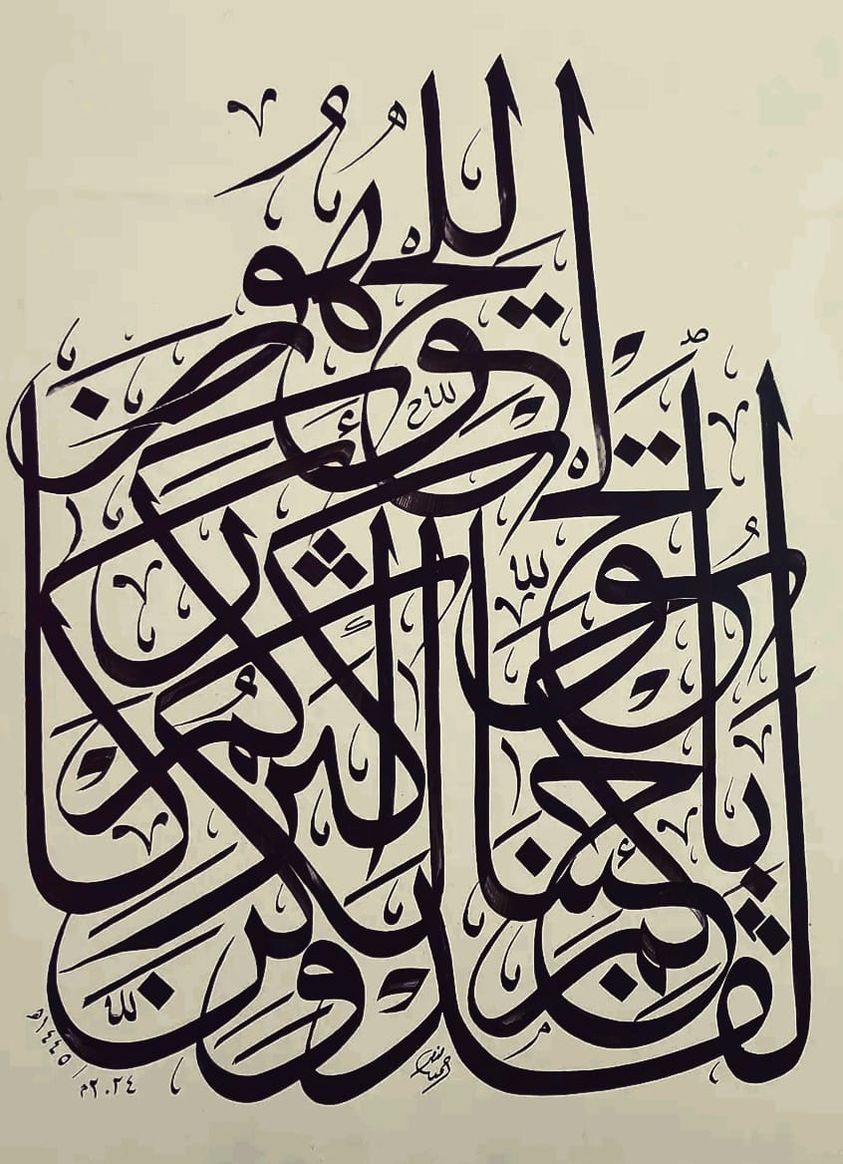 لَقَدْ جِئْنَٰكُم بِالْحَقِّ وَلَٰكِنَّ أَكْثَرَكُمْ لِلْحَقِّ كَٰرِهُونَ
١٤٤٥هـ / ٢٠٢٤م